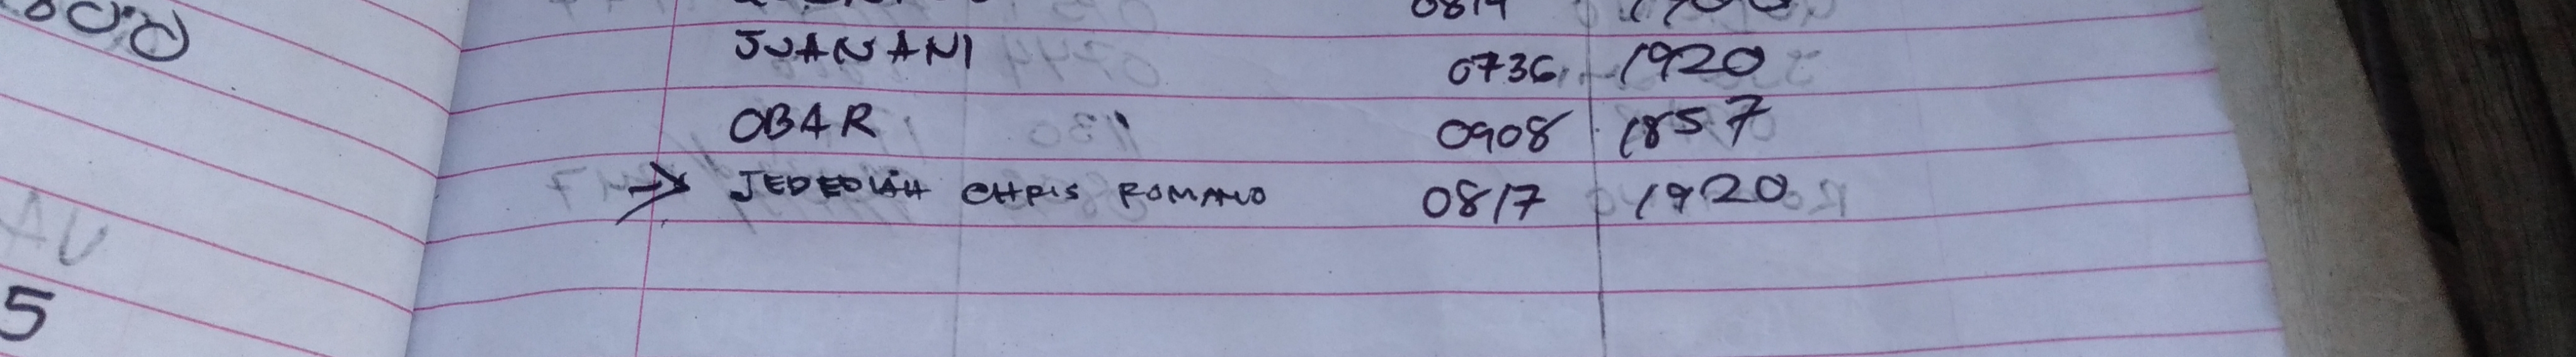 0819
JUANANI 0736 1920
OBAR 0908 1857
→ JEDEDIAH CHRIS ROMANO 0817 1920
5